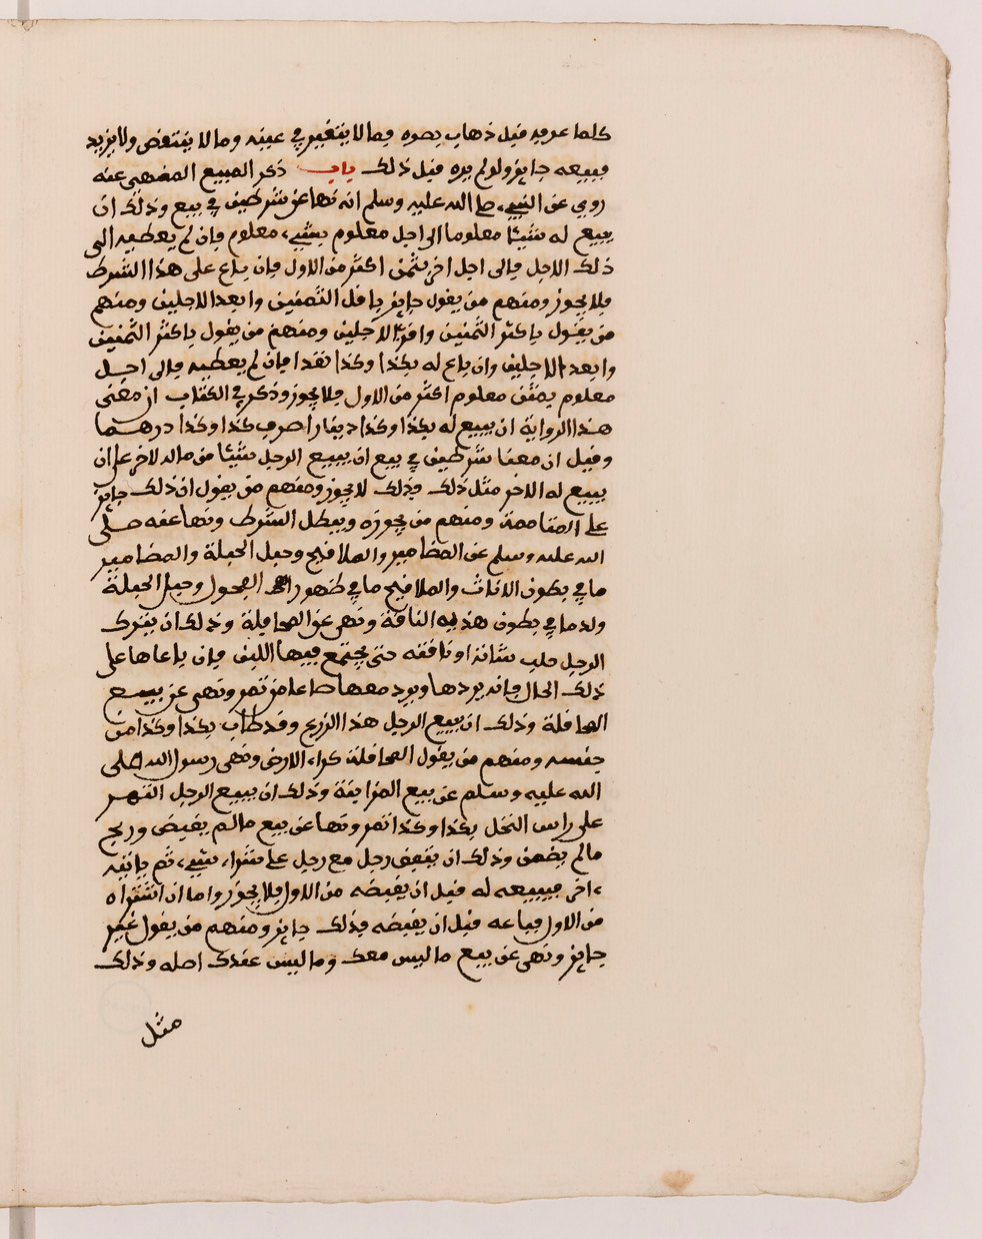 كلما عرفه قبل ذهاب بصره فيما لا يتغير في عينه وما لا ينتقص ولا يزيد
فبيعه جايز ولو لم يره قبل ذلك باب ذكر المبيع المنهى عنه
روي عن النبيء صلى الله عليه وسلم انه نها عن شرطين في بيع وذلك ان
يبيع له شيئا معلوما الى اجل معلوم بشيء معلوم فإن لم يعطيه الى
ذلك الاجل فالى اجل اخر بثمن اكثر من الاول فإن باع على هذا الشرط
فلا يجوز ومنهم من يقول جايز باقل الثمنين وابعد الاجلين ومنهم
من يقول باكثر الثمنين واقرب الاجلين ومنهم من يقول باكثر الثمنين
وابعد الاجلين وان باع له بكذا وكذا نقدا فإن لم يعطيه فالى اجل
معلوم بثمن معلوم اكثر من الاول فلا يجوز وذكر في الكتاب ان معنى
هذا الرواية ان يبيع له بكذا وكذا دينارا صرف كذا وكذا درهما
وقيل ان معنا شرطين في بيع ان يبيع الرجل شيئا من ماله لاخر على ان
يبيع له الاخر مثل ذلك فذلك لا يجوز ومنهم من يقول ان ذلك جايز
على المتاممة ومنهم من يجوزه ويبطل الشرط ونها عنه صلى
الله عليه وسلم عن المضامير والملافيح وحبل الحبلة والمضامير
ما في بطون الاناث والملافيح ما في ظهور الفحول وحبل الحبلة
ولد ما في بطون هذيه الناقة ونهى عن المحافلة وذلك ان يترك
الرجل حلب شاته او ناقته حتى يجتمع فيها اللبن فإن باعاها على
ذلك الحال فإنه يردها ويرد معها صاعا من تمر ونهى عن بيع
المحاقلة وذلك ان يبيع الرجل هذا الزرع وقد طاب بكذا وكذا من
جنسه ومنهم من يقول المحاقلة كراء الارض ونهى رسول الله صلى
الله عليه وسلم عن بيع المزابنة وذلك ان يبيع الرجل التمر
على راس النخل بكذا وكذا تمر ونها عن بيع مالم يقبض وربح
مالم يضمن وذلك ان يتفق رجل مع رجل على شراء شيء ثم ياتيه
ءاخر فيبيعه له قبل ان يقبضه من الاول فلا يجوز واما ان اشتراه
من الاول فباعه قبل ان يقبضه فذلك جايز ومنهم من يقول غير
جايز ونهى عن بيع ما ليس معك وما ليس عندك اصله وذلك
مثل